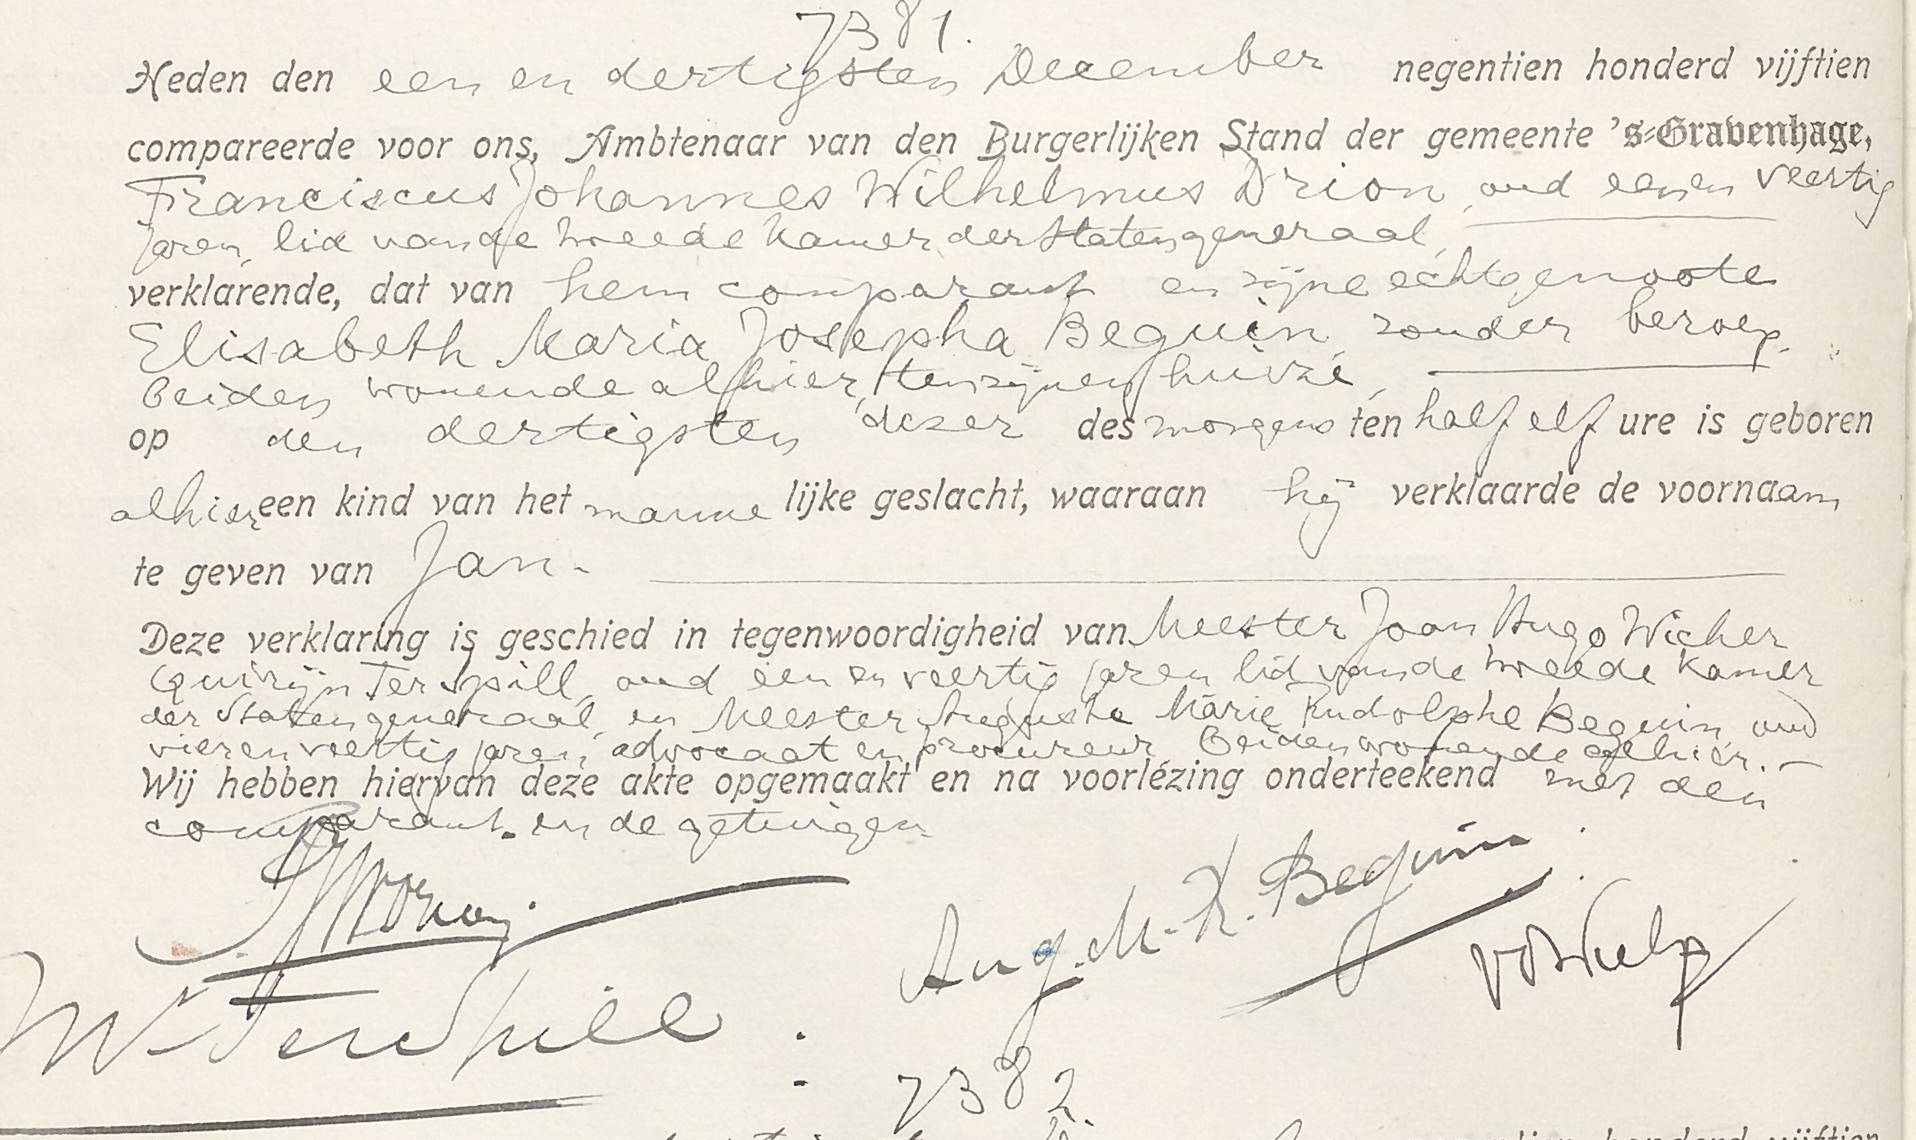 7381.
Heden den een en dertigsten December negentien honderd vijftien
compareerde voor ons, Ambtenaar van den Burgerlijken Stand der gemeente 's-Gravenhage,
Franciscus Johannes Wilhelmus Drion, oud een en veertig
jaren, lid van de tweede Kamer der Staten generaal,
verklarende, dat van hem comparant en zijne echtgenoote
Elisabeth Maria Josepha Beguin, zonder beroep,
beiden wonende alhier, ten zijnen huize,
op den dertigsten dezer des morgens ten half elf ure is geboren
alhier een kind van het mannelijke geslacht, waaraan hij verklaarde de voornaam
te geven van Jan.
Deze verklaring is geschied in tegenwoordigheid van Meester Joan Hugo Wicher
Quirijn Ter Spill, oud een en veertig jaren lid van de tweede Kamer
der Staten generaal, en Meester Auguste Marie Rudolphe Beguin, oud
vier en veertig jaren, advocaat en procureur, beiden wonende alhier.
Wij hebben hiervan deze akte opgemaakt en na voorlezing onderteekend met den
comparant en de getuigen.
Aug. M. R. Beguin
Mr Ter Spill
7382.
negentien honderd vijftien